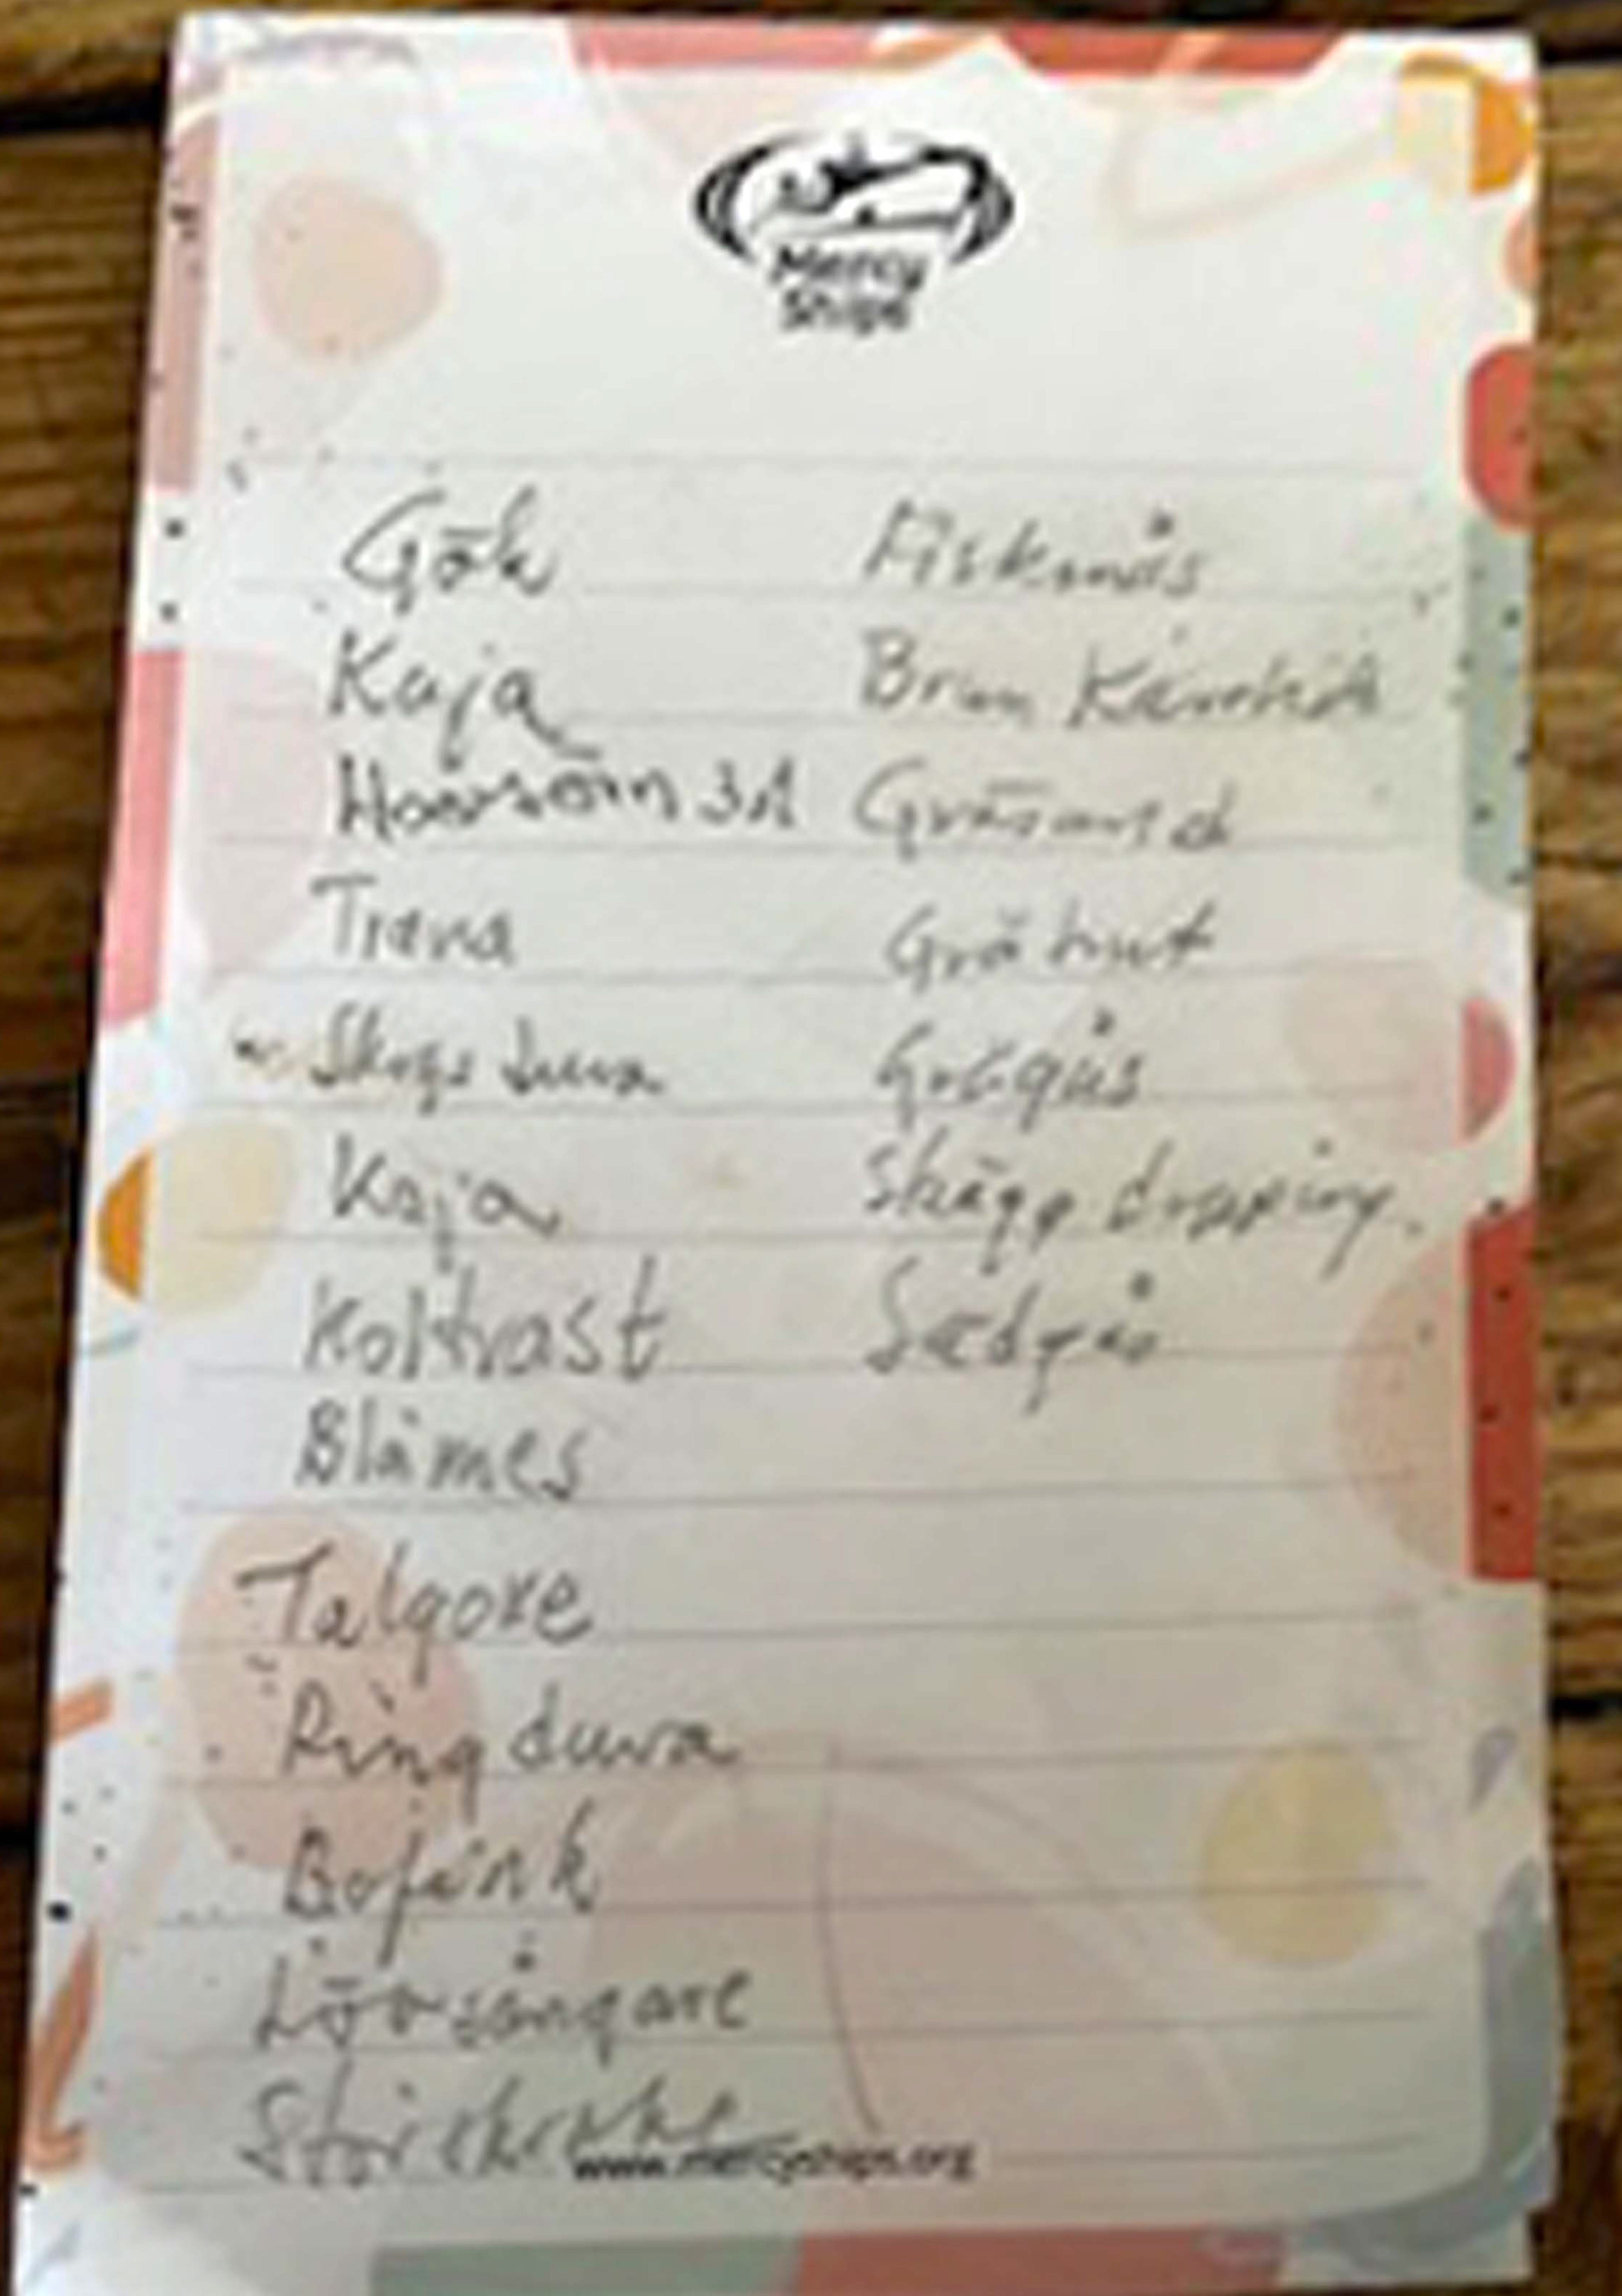 Mercy
Ships
Gök
Kaja
Trana
Skogsduva
Kaja
Koltrast
Blåmes
Talgoxe
Ringduva
Bofink
Lövsångare
Storskrake
Fiskmås
Brun Kärrhök
Gräsand
Grå trut
Grågås
Skägg dopping
Sädgås
www.mercyships.org